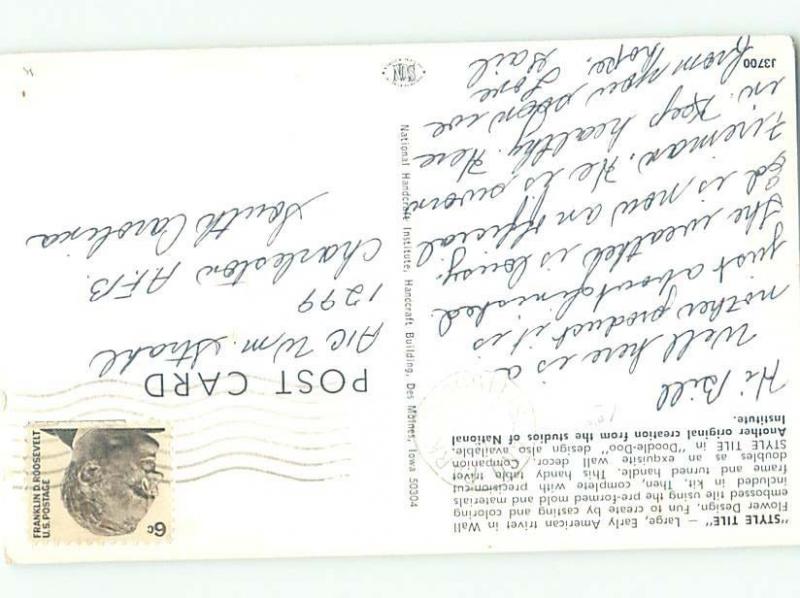 "STYLE TILE" — Large, Early American trivet in Wall
Flower Design. Fun to create by casting and coloring
embossed tile using the pre-formed mold and materials
included in kit. Then, complete with precision-cut
frame and turned handle. This handy table trivet
doubles as an exquisite wall decor. Companion
STYLE TILE in "Doodle-Doo" design also available.
Another original creation from the studios of National
Institute.
Hi Bill
Well here is a
nother product it is
just about finished.
The weather is lousy.
Ed is now an official
Fireman. He is sworn
in. Keep healthy. Here
from you soon we
hope. Love
Gail
J3700
National Handcraft Institute, Handcraft Building, Des Moines, Iowa 50304
POST CARD
FRANKLIN D. ROOSEVELT
U.S. POSTAGE
6c
A1C Wm. Strahl
1299
Charleston A.F.B.
South Carolina